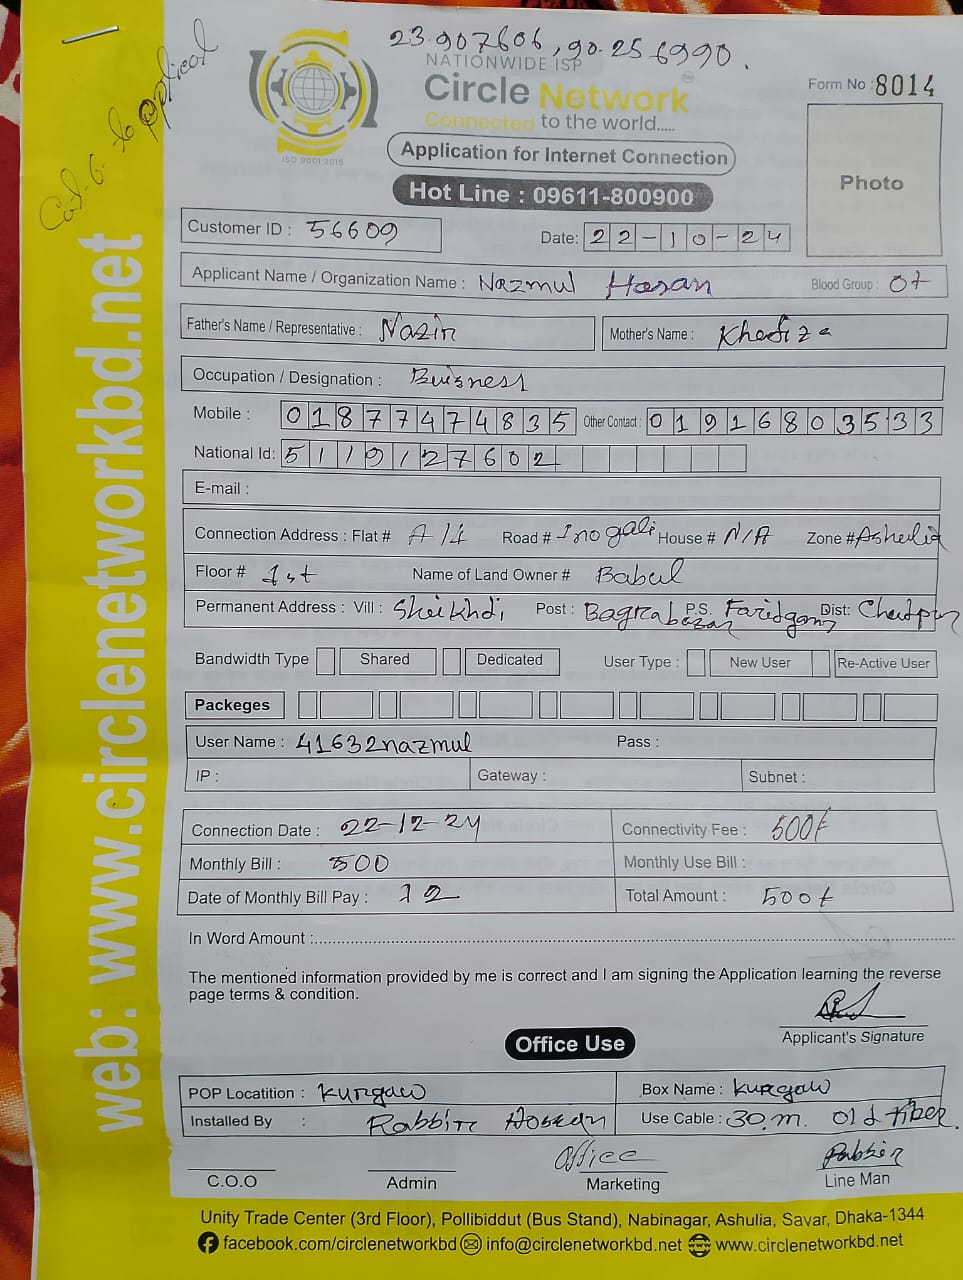 23.907606, 90.256990.
Cat-6 to optical
NATIONWIDE ISP
Circle Network
Connected to the world.....
ISO 9001:2015
Form No : 8014
Application for Internet Connection
Hot Line : 09611-800900
Photo
Customer ID : 56609
Date: 22-10-24
Applicant Name / Organization Name : Nazmul Hasan Blood Group : O+
Father's Name / Representative : Nasir Mother's Name : Khadiza
Occupation / Designation : Buisness
Mobile : 01877474835 Other Contact : 01916803533
National Id: 5119127602
E-mail :
Connection Address : Flat # A/4 Road # 1no gali House # N/A Zone # Ashulia
Floor # 1st Name of Land Owner # Babul
Permanent Address : Vill : Post : Bagrabazar P.S. Faridgonj Dist: Chadpur
Bandwidth Type Shared Dedicated User Type : New User Re-Active User
Packeges
User Name : 41632nazmul Pass :
IP : Gateway : Subnet :
Connection Date : 22-12-24 Connectivity Fee : 500t
Monthly Bill : 500 Monthly Use Bill :
Date of Monthly Bill Pay : 12 Total Amount : 500t
In Word Amount :
The mentioned information provided by me is correct and I am signing the Application learning the reverse
page terms & condition.
Applicant's Signature
Office Use
POP Locatition : Kurgaw Box Name : Kurgaw
Installed By : Rabbir Hosen Use Cable : 30.m. Old fiber.
Office
C.O.O Admin Marketing Line Man
Unity Trade Center (3rd Floor), Pollibiddut (Bus Stand), Nabinagar, Ashulia, Savar, Dhaka-1344
facebook.com/circlenetworkbd info@circlenetworkbd.net www.circlenetworkbd.net
web: www.circlenetworkbd.net